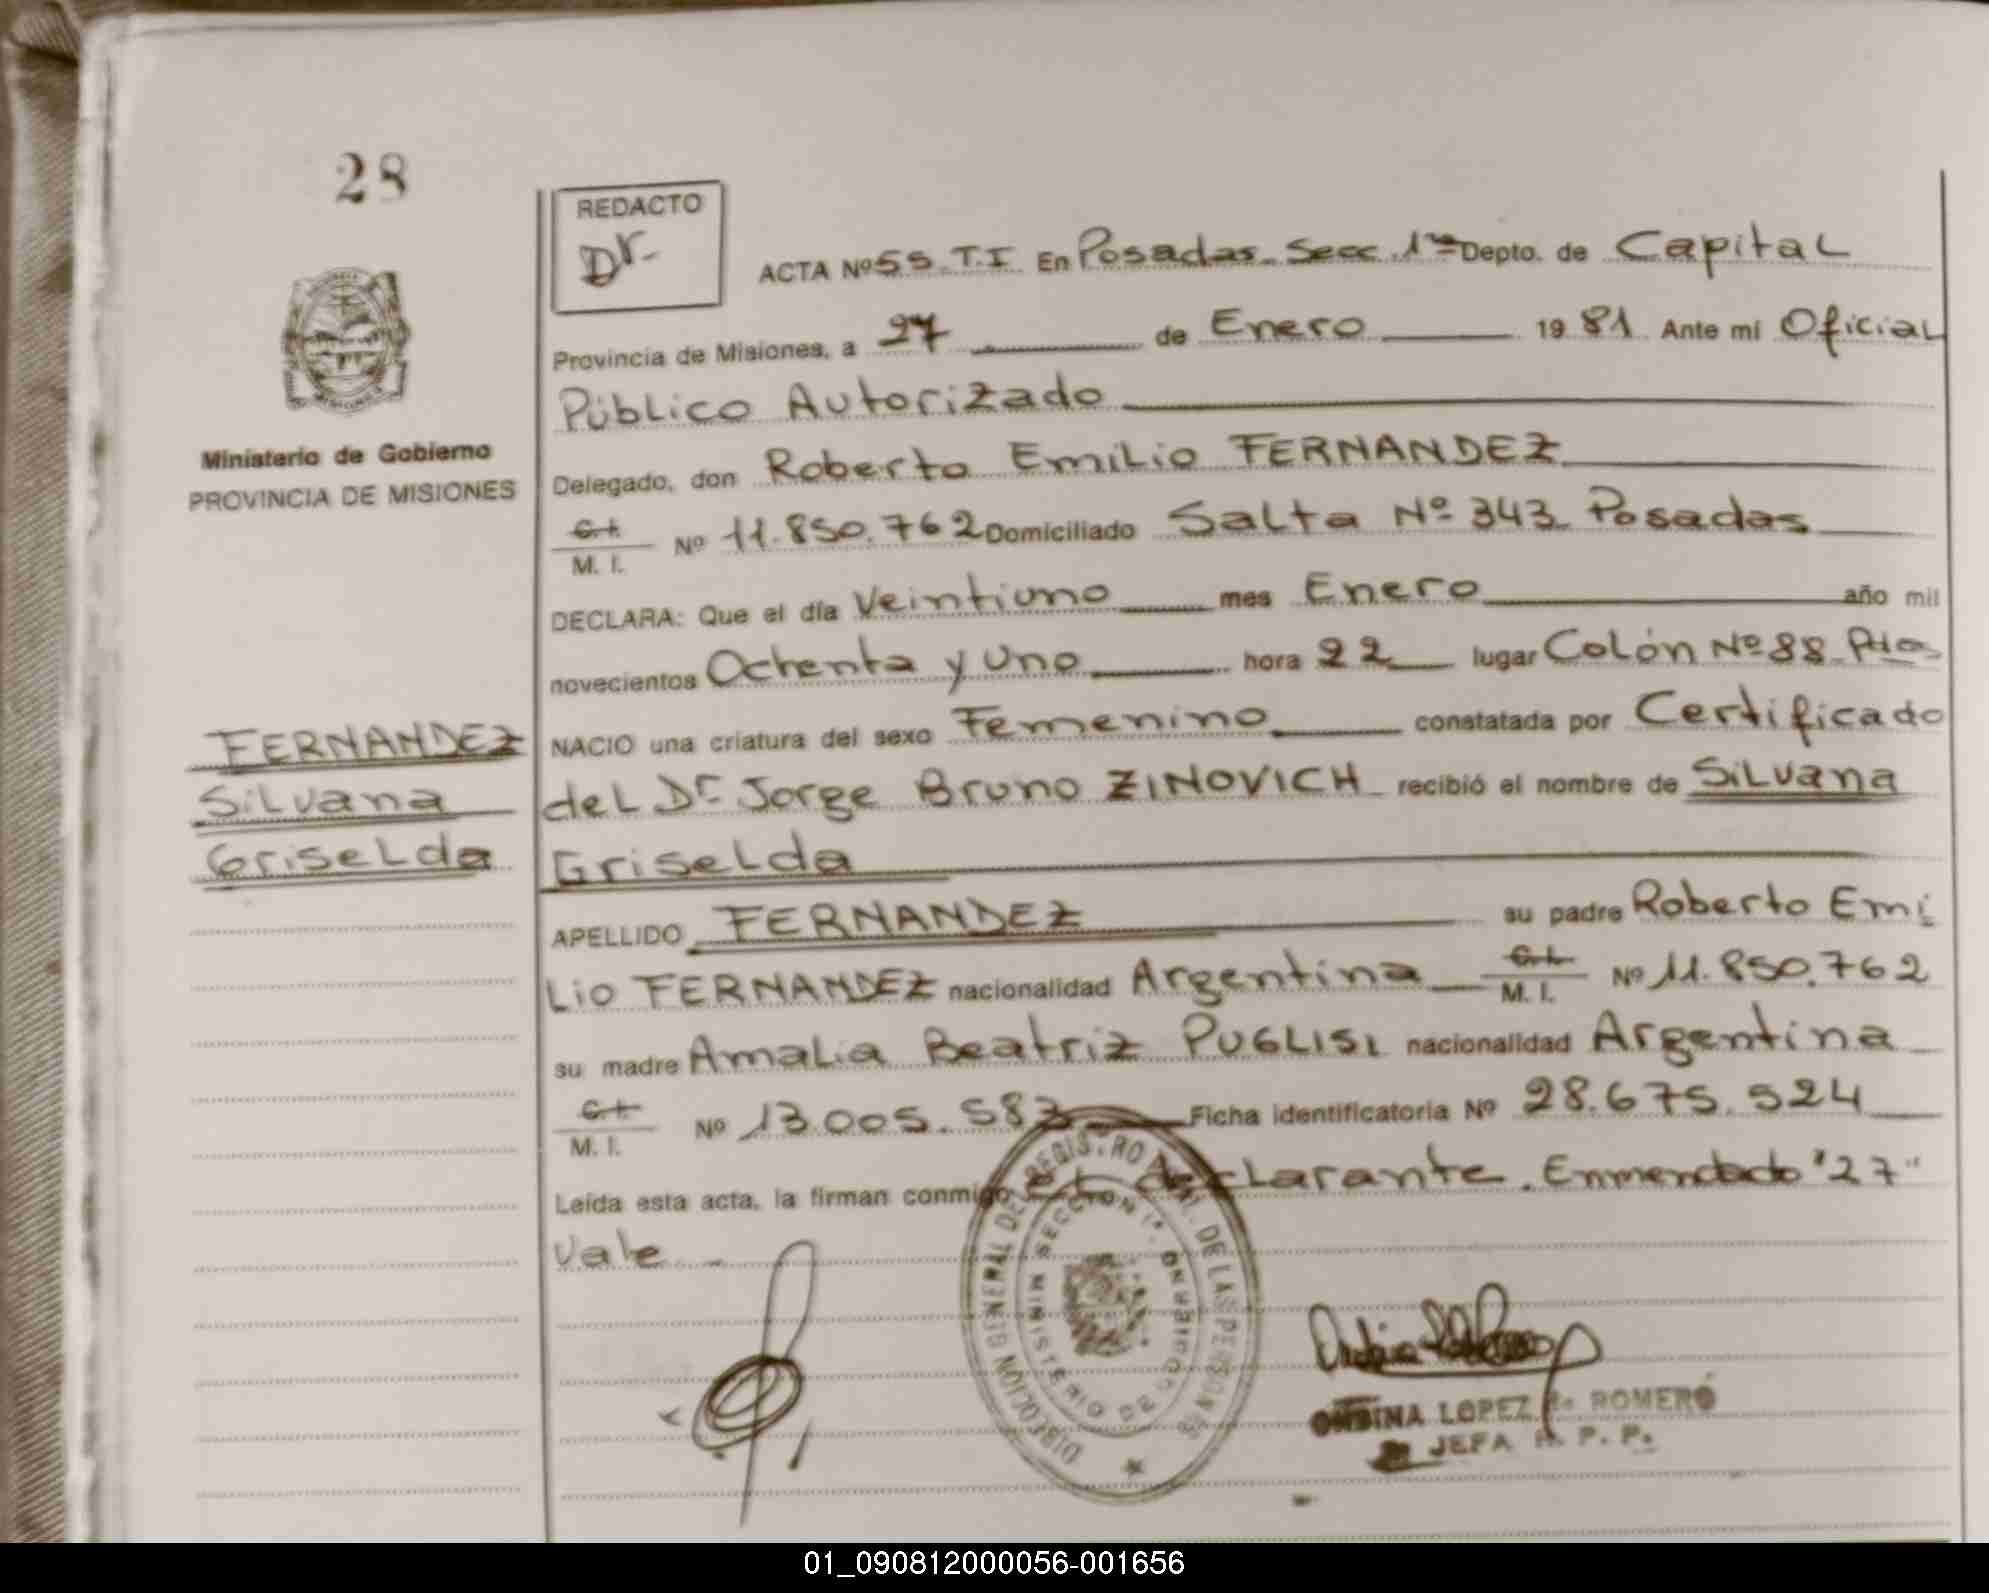 28
REDACTO
Dr.
ACTA Nº 55. T.I En Posadas. Secc. 1ra Depto. de Capital
Provincia de Misiones, a 27 de Enero 1981 Ante mi Oficial
Público Autorizado
Ministerio de Gobierno
PROVINCIA DE MISIONES
Delegado, don Roberto Emilio FERNANDEZ
C.I. M. I. Nº 11.850.762 Domiciliado Salta Nº 343 Posadas
DECLARA: Que el día Veintiuno mes Enero año mil
novecientos Ochenta y Uno hora 22 lugar Colón Nº 88 Pdas
FERNANDEZ
Silvana
Griselda
NACIO una criatura del sexo Femenino constatada por Certificado
del Dr Jorge Bruno ZINOVICH recibió el nombre de Silvana
Griselda
APELLIDO FERNANDEZ su padre Roberto Emi
lio FERNANDEZ nacionalidad Argentina C.I. M. I. Nº 11.850.762
su madre Amalia Beatriz PUGLISI nacionalidad Argentina
C.I. M. I. Nº 13.005.583 Ficha identificatoria Nº 28.675.524
Leída esta acta, la firman conmigo el declarante. Enmendado "27"
Vale.
DIRECCION GENERAL DEL REGISTRO DE LAS PERSONAS
MINISTERIO DE GOBIERNO
SECCION 1ª
ONDINA LOPEZ de ROMERO
JEFA R. P. P.
01_090812000056-001656